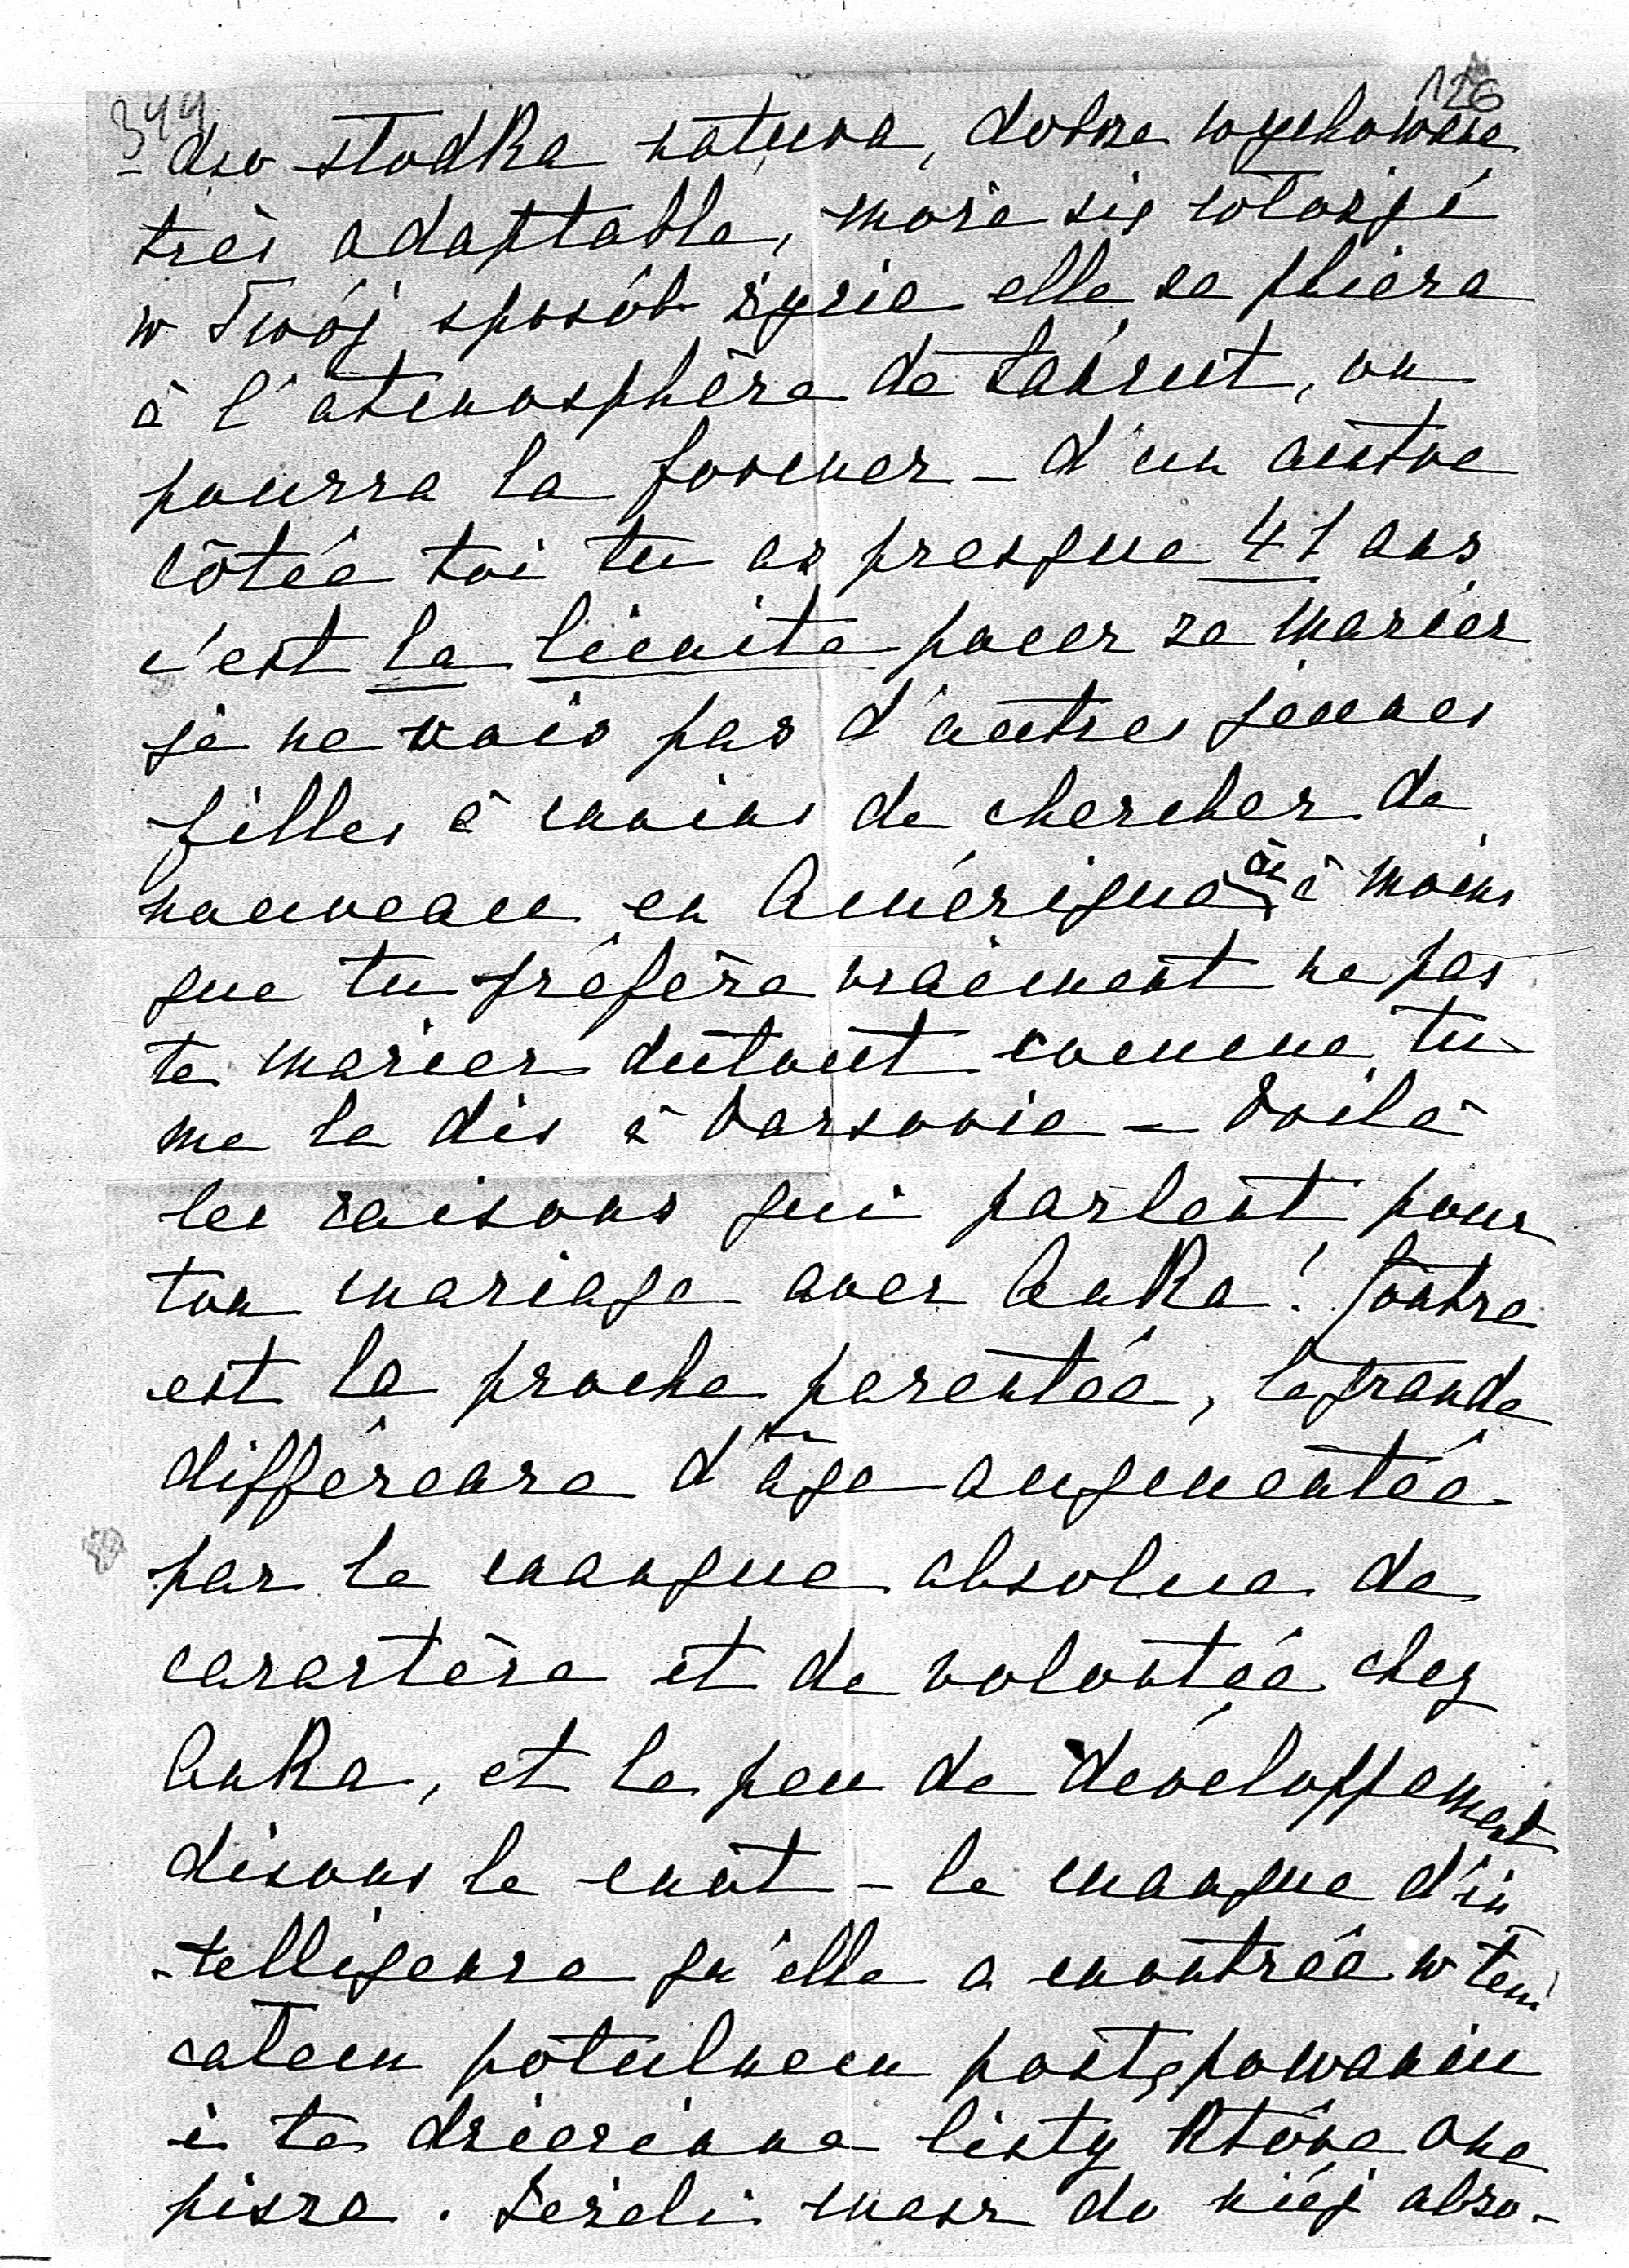 344 126
-dzo słodka natura, dobrze wychowana
très adaptable, może się włożyć
w Twój sposób życia elle se pliera
à l'atmosphère de Łańcut, on
pourra la former – d'un autre
côtée toi tu as presque 41 ans
c'est la limite pour se marier
je ne vois pas d'autres jeunes
filles à moins de chercher de
nouveau en Amérique ou à moins
que tu préfère vraiment ne pas
te marier dutout comme tu
me le dis à Varsovie – Voilà
les raisons qui parlent pour
ton mariage avec Anka! Contre
est la proche parentée, la grande
différence d'âge augmentée
par le manque absolue de
caractère et de volontée chez
Anka, et le peu de développement
disons le mot – le manque d'in
-telligence qu'elle a montrée w tem
całem potulnem postępowaniu
i te dziecinne listy które ona
pisze. Jeżeli masz do niéj abso-